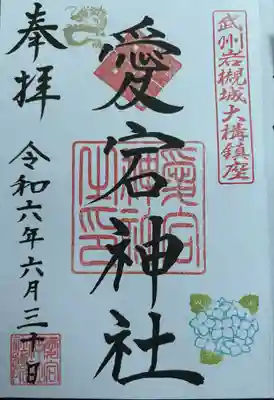 武州岩槻城大構鎮座
奉拝
愛宕神社
愛宕神社之印
令和六年六月三十日